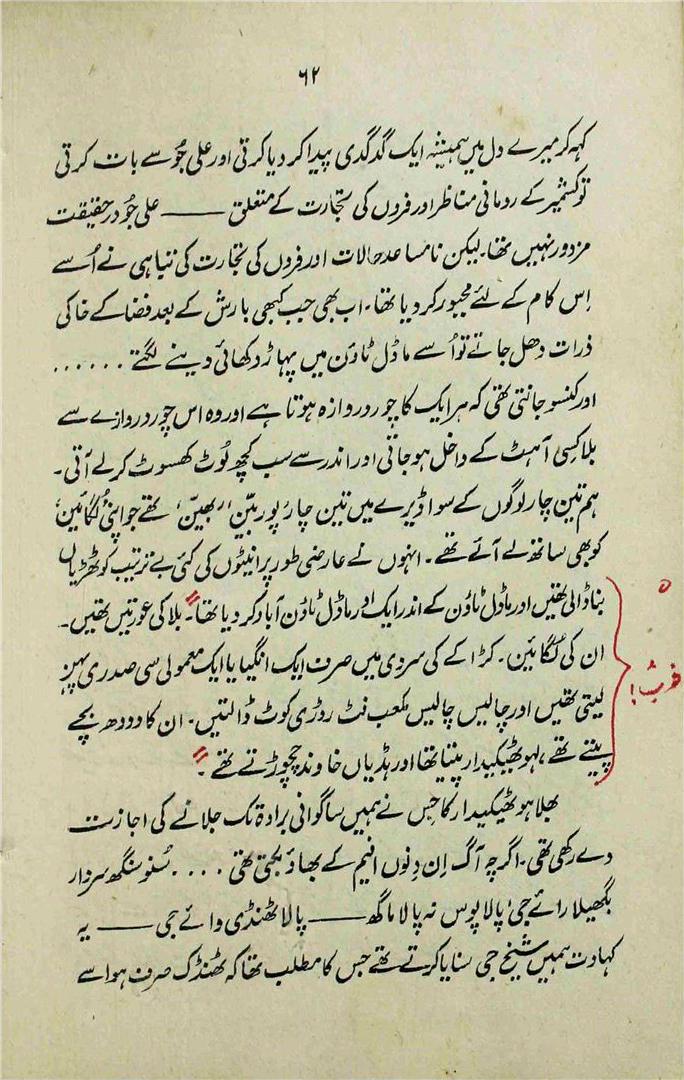 ۶۲
کہہ کر میرے دل میں ہمیشہ ایک گدگدی پیدا کر دیا کرتی اور علی جُو سے بات کرتی
تو کشمیر کے رومانی مناظر اور فروں کی تجارت کے متعلق —— علی جُو در حقیقت
مزدور نہیں تھا۔ لیکن نامساعد حالات اور فروں کی تجارت کی تباہی نے اُسے
اِس کام کے لئے مجبور کر دیا تھا۔ اب بھی جب کبھی بارش کے بعد فضا کے خاکی
ذرات دھل جاتے تو اُسے ماڈل ٹاؤن میں پہاڑ دکھائی دینے لگتے ......
اور کنسو جانتی تھی کہ ہر ایک کا چور دروازہ ہوتا ہے اور وہ اس چور دروازے سے
بلا کسی آہٹ کے داخل ہو جاتی اور اندر سے سب کچھ لُوٹ کھسوٹ کر لے آتی۔
ہم تین چار لوگوں کے سوا ڈیرے میں تین چار پوربیّن ‘ربھیّن’ تھے جو اپنی ‘لُگائین’
کو بھی ساتھ لے آئے تھے۔ انہوں نے عارضی طور پر اینٹوں کی کئی بے ترتیب کوٹھڑیاں
بنا ڈالی تھیں اور ماڈل ٹاؤن کے اندر ایک اور ماڈل ٹاؤن آباد کر دیا تھا۔ بلا کی عورتیں تھیں۔
ان کی لُگائین۔ کڑاکے کی سردی میں صرف ایک انگیا یا ایک معمولی سی صدری پہن
لیتی تھیں اور چالیس چالیس مکعب فٹ روڑی کوٹ ڈالتیں۔ ان کا دودھ بچے
پیتے تھے، لہو ٹھیکیدار پیتا تھا اور ہڈیاں خاوند چچوڑتے تھے۔
بھلا ہو ٹھیکیدار کا جس نے ہمیں ساگوانی برادۃ تک جلانے کی اجازت
دے رکھی تھی۔ اگرچہ آگ اِن دِنوں افیم کے بھاؤ بکتی تھی .... سُنو سنگھ سردار
بگھیلا رائے جی! پالا پوس نہ پالا ماگھ —— پالا ٹھنڈی وائے جی —— یہ
کہاوت ہمیں شیخ جی سنایا کرتے تھے جس کا مطلب تھا کہ ٹھنڈک صرف ہوا سے